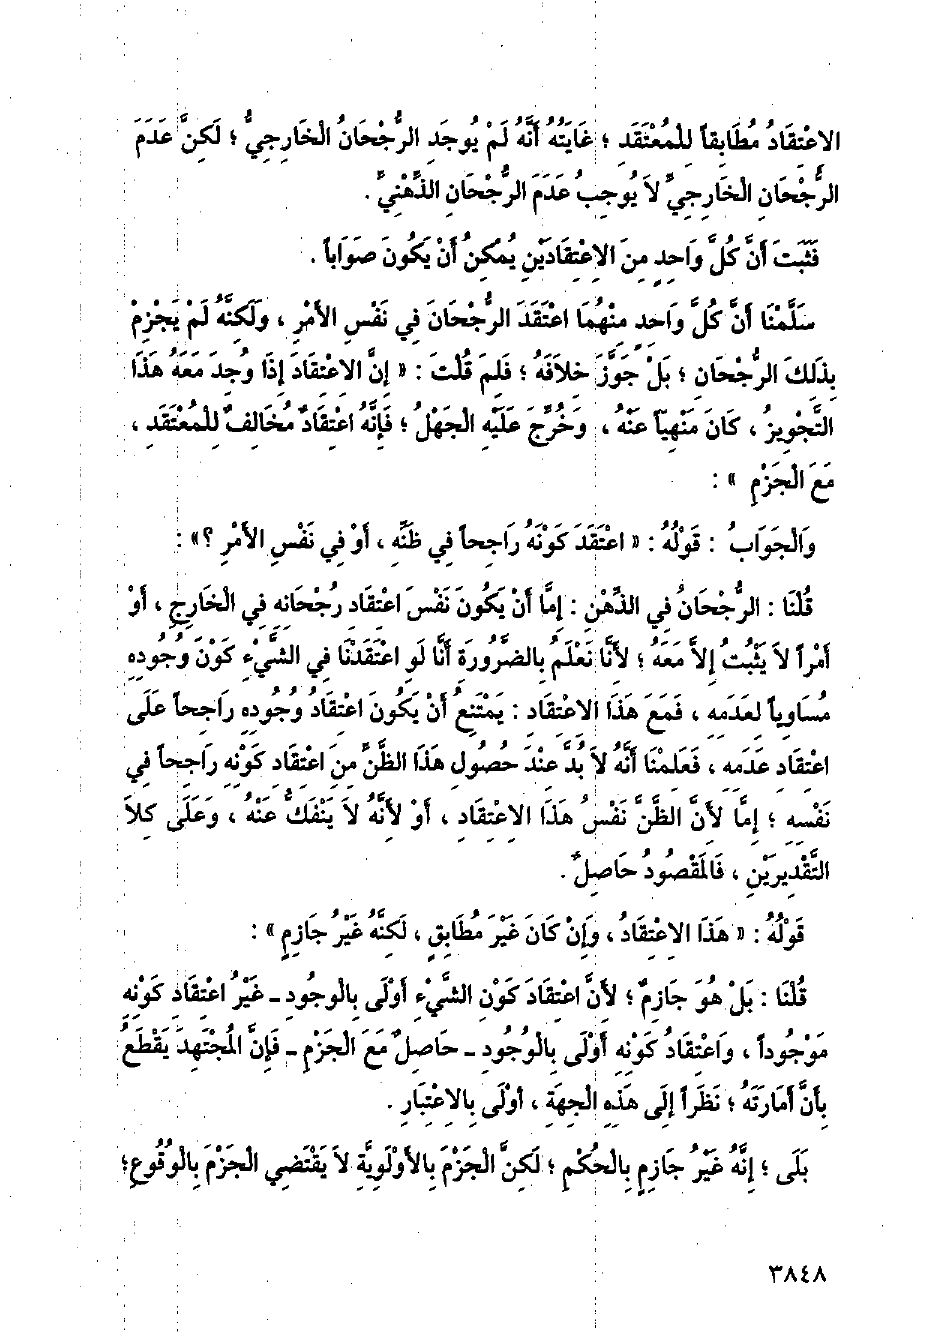 الاعْتِقَادُ مُطَابِقاً لِلْمُعْتَقَدِ ؛ غَايَتُهُ أَنَّهُ لَمْ يُوجَدِ الرُّجْحَانُ الْخَارِجِيُّ ؛ لَكِنَّ عَدَمَ
الرُّجْحَانِ الْخَارِجِيِّ لاَ يُوجِبُ عَدَمَ الرُّجْحَانِ الذِّهْنِيِّ .
فَثَبَتَ أَنَّ كُلَّ وَاحِدٍ مِنَ الاِعْتِقَادَيْنِ يُمْكِنُ أَنْ يَكُونَ صَوَاباً .
سَلَّمْنَا أَنَّ كُلَّ وَاحِدٍ مِنْهُمَا اعْتَقَدَ الرُّجْحَانَ فِي نَفْسِ الأَمْرِ ، وَلَكِنَّهُ لَمْ يَجْزِمْ
بِذَلِكَ الرُّجْحَانِ ؛ بَلْ جَوَّزَ خِلاَفَهُ ؛ فَلِمَ قُلْتَ : « إِنَّ الاعْتِقَادَ إِذَا وُجِدَ مَعَهُ هَذَا
التَّجْوِيزُ ، كَانَ مَنْهِيّاً عَنْهُ ، وَخُرِّجَ عَلَيْهِ الْجَهْلُ ؛ فَإِنَّهُ اعْتِقَادٌ مُخَالِفٌ لِلْمُعْتَقَدِ ،
مَعَ الْجَزْمِ » :
وَالْجَوَابُ : قَوْلُهُ : « اعْتَقَدَ كَوْنَهُ رَاجِحاً فِي ظَنِّهِ ، أَوْ فِي نَفْسِ الأَمْرِ ؟» :
قُلْنَا : الرُّجْحَانُ فِي الذِّهْنِ : إِمَّا أَنْ يَكُونَ نَفْسَ اعْتِقَادِ رُجْحَانِهِ فِي الْخَارِجِ ، أَوْ
أَمْراً لاَ يَثْبُتُ إِلاَّ مَعَهُ ؛ لأَنَّا نَعْلَمُ بِالضَّرُورَةِ أَنَّا لَوِ اعْتَقَدْنَا فِي الشَّيْءِ كَوْنَ وُجُودِهِ
مُسَاوِياً لِعَدَمِهِ ، فَمَعَ هَذَا الاِعْتِقَادِ : يَمْتَنِعُ أَنْ يَكُونَ اعْتِقَادُ وُجُودِهِ رَاجِحاً عَلَى
اعْتِقَادِ عَدَمِهِ ، فَعَلِمْنَا أَنَّهُ لاَ بُدَّ عِنْدَ حُصُولِ هَذَا الظَّنِّ مِنَ اعْتِقَادِ كَوْنِهِ رَاجِحاً فِي
نَفْسِهِ ؛ إِمَّا لأَنَّ الظَّنَّ نَفْسُ هَذَا الاِعْتِقَادِ ، أَوْ لأَنَّهُ لاَ يَنْفَكُّ عَنْهُ ، وَعَلَى كِلاَ
التَّقْدِيرَيْنِ ، فَالمَقْصُودُ حَاصِلٌ .
قَوْلُهُ : « هَذَا الاِعْتِقَادُ ، وَإِنْ كَانَ غَيْرَ مُطَابِقٍ ، لَكِنَّهُ غَيْرُ جَازِمٍ » :
قُلْنَا : بَلْ هُوَ جَازِمٌ ؛ لأَنَّ اعْتِقَادَ كَوْنِ الشَّيْءِ أَوْلَى بِالْوُجُودِ ـ غَيْرُ اعْتِقَادِ كَوْنِهِ
مَوْجُوداً ، وَاعْتِقَادُ كَوْنِهِ أَوْلَى بِالْوُجُودِ ـ حَاصِلٌ مَعَ الْجَزْمِ ـ فَإِنَّ المُجْتَهِدَ يَقْطَعُ
بِأَنَّ أَمَارَتَهُ ؛ نَظَراً إِلَى هَذِهِ الْجِهَةِ ، أَوْلَى بِالاِعْتِبَارِ .
بَلَى ؛ إِنَّهُ غَيْرُ جَازِمٍ بِالْحُكْمِ ؛ لَكِنَّ الْجَزْمَ بِالأَوْلَوِيَّةِ لاَ يَقْتَضِي الْجَزْمَ بِالْوُقُوعِ؛
٣٨٤٨